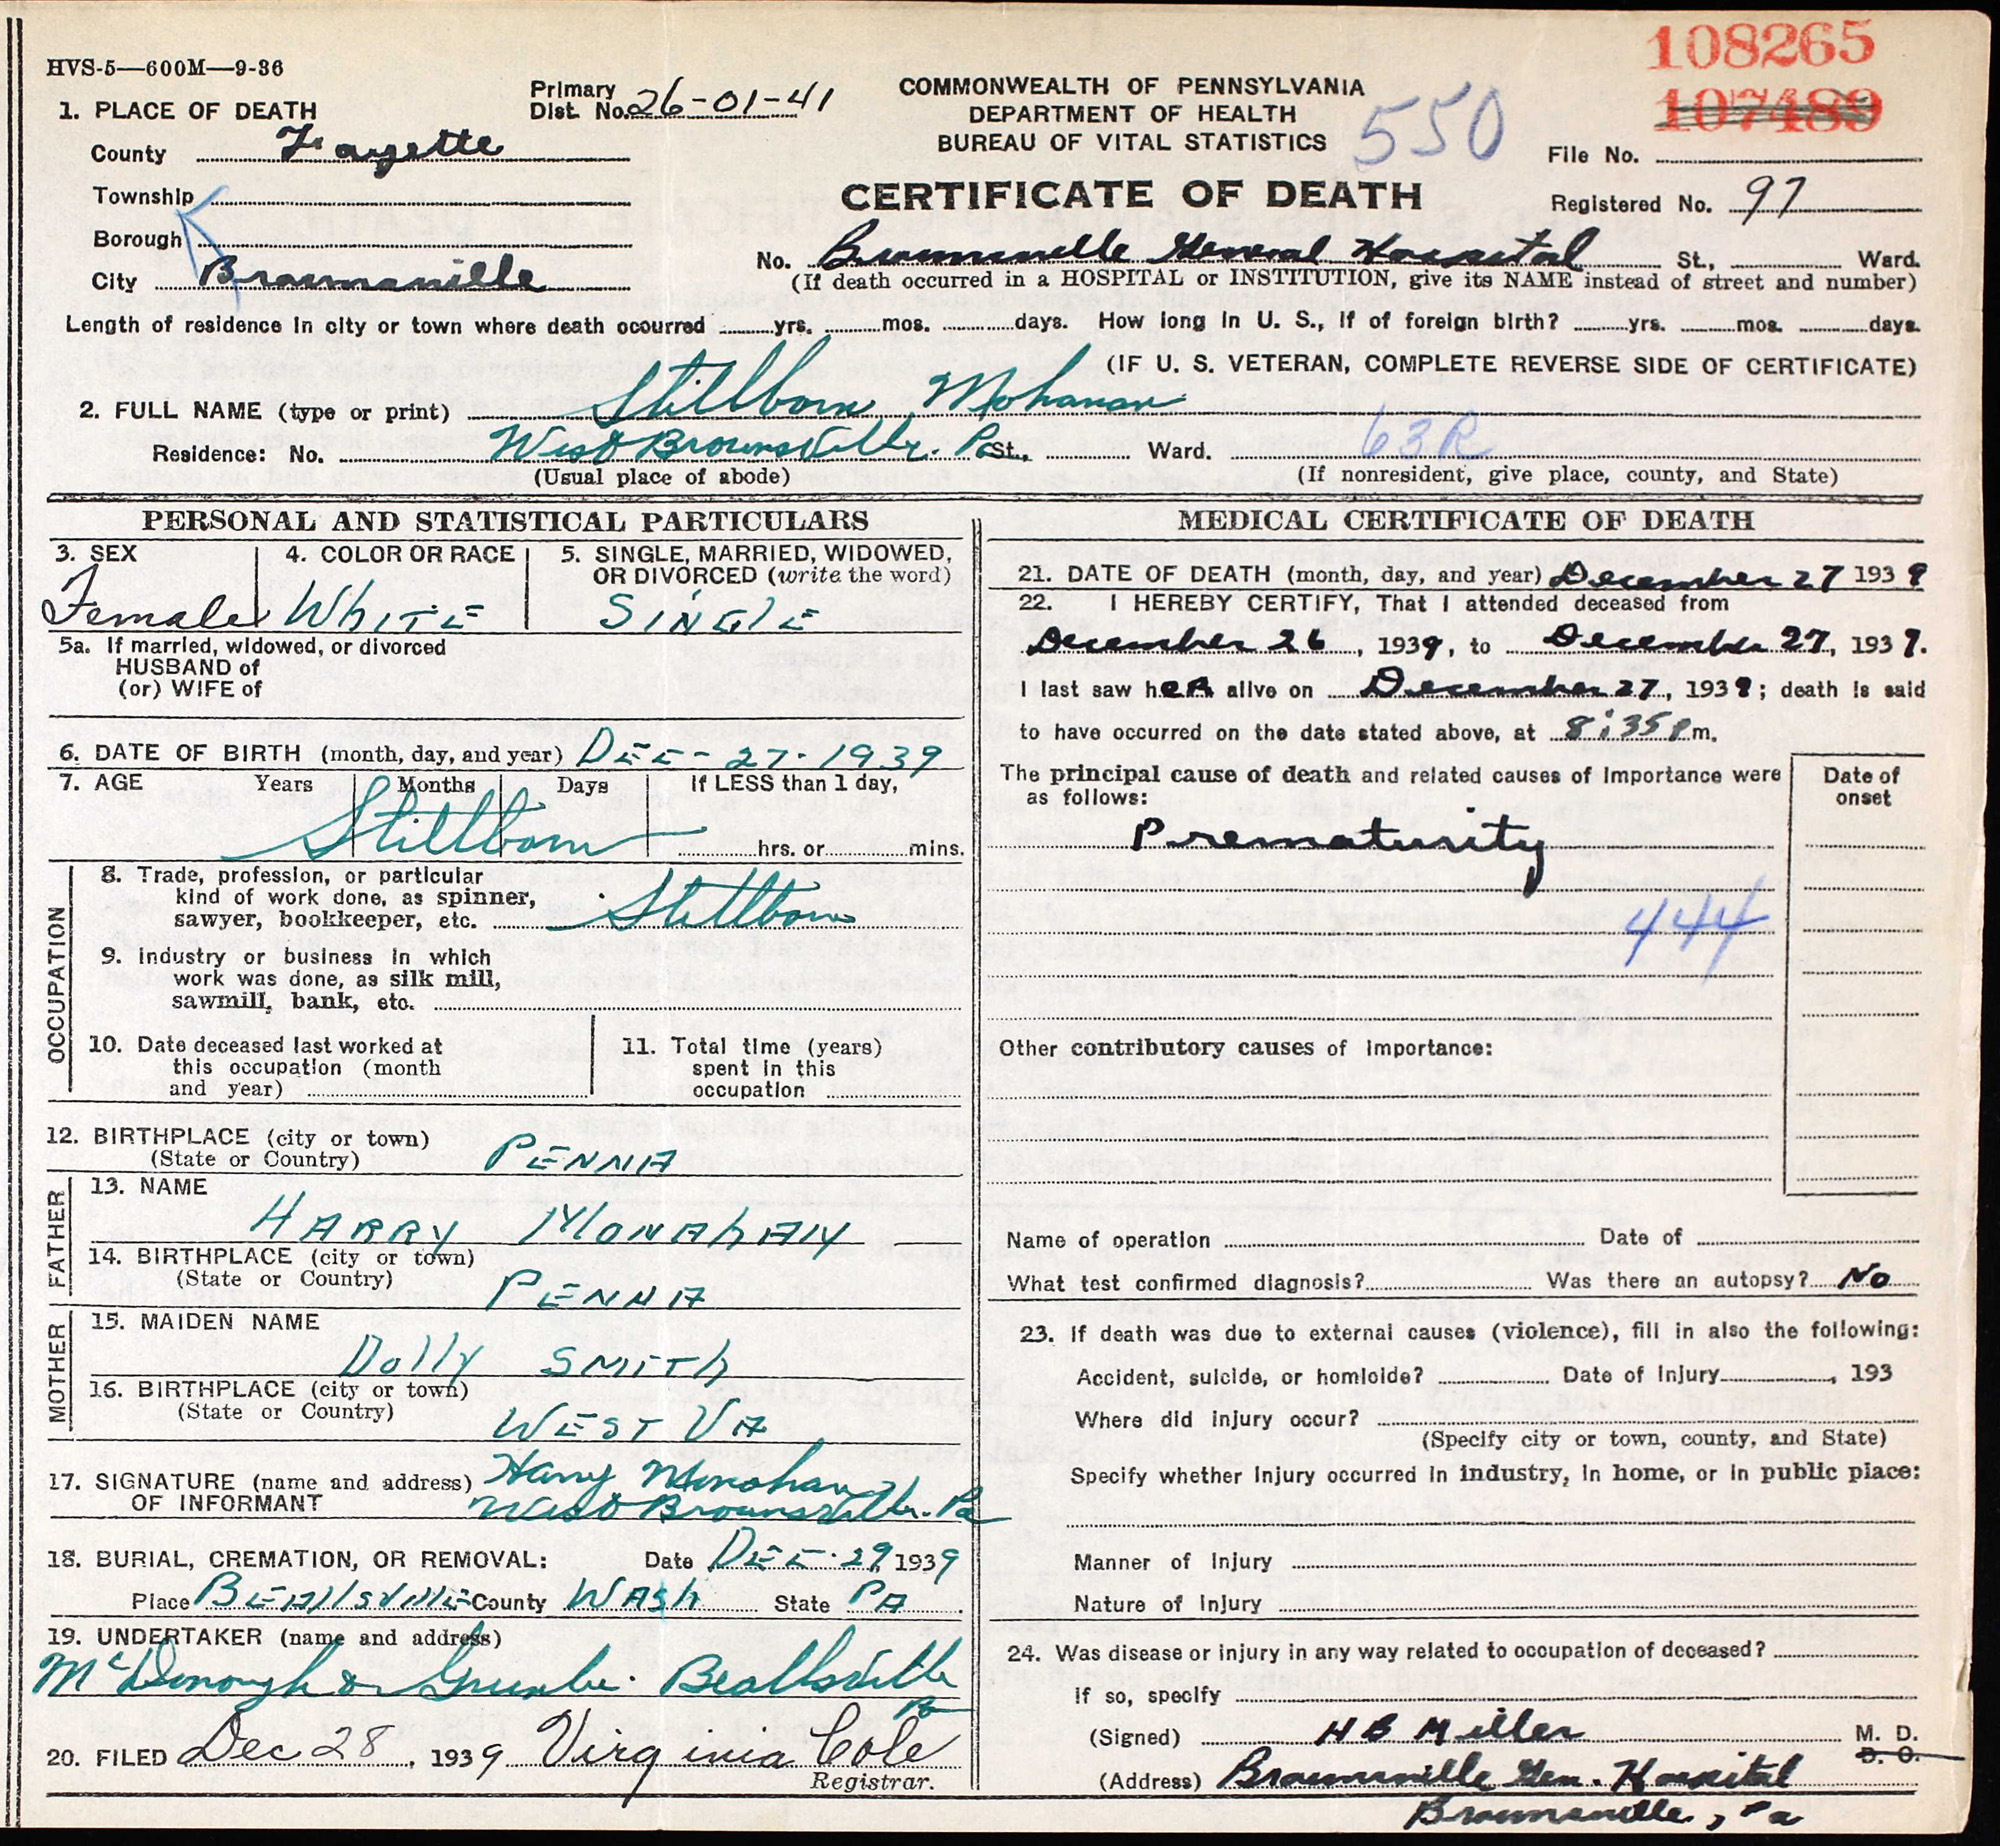 108265
HVS-5—600M—9-36
107489
1. PLACE OF DEATH
Primary Dist. No. 26-01-41
COMMONWEALTH OF PENNSYLVANIA
DEPARTMENT OF HEALTH
BUREAU OF VITAL STATISTICS
550
County Fayette
File No.
Township
CERTIFICATE OF DEATH
Registered No. 97
Borough
City Brownsville
No. Brownsville General Hospital St., Ward.
(If death occurred in a HOSPITAL or INSTITUTION, give its NAME instead of street and number)
Length of residence in city or town where death occurred yrs. mos. days. How long in U. S., if of foreign birth? yrs. mos. days.
(IF U. S. VETERAN, COMPLETE REVERSE SIDE OF CERTIFICATE)
2. FULL NAME (type or print) Stillborn Mohanan
Residence: No. West Brownsville. Pa St., Ward. 63R
(Usual place of abode) (If nonresident, give place, county, and State)
PERSONAL AND STATISTICAL PARTICULARS
3. SEX
Female
4. COLOR OR RACE
WhITE
5. SINGLE, MARRIED, WIDOWED,
OR DIVORCED (write the word)
SINGlE
5a. If married, widowed, or divorced
HUSBAND of
(or) WIFE of
6. DATE OF BIRTH (month, day, and year) DEC - 27 - 1939
7. AGE Years Months Days If LESS than 1 day,
Stillborn hrs. or mins.
OCCUPATION
8. Trade, profession, or particular
kind of work done, as spinner,
sawyer, bookkeeper, etc. Stillborn
9. Industry or business in which
work was done, as silk mill,
sawmill, bank, etc.
10. Date deceased last worked at
this occupation (month
and year)
11. Total time (years)
spent in this
occupation
12. BIRTHPLACE (city or town)
(State or Country) PENNA
FATHER
13. NAME
HARRY MONAhAN
14. BIRTHPLACE (city or town)
(State or Country) PENNA
MOTHER
15. MAIDEN NAME
Dolly SMITh
16. BIRTHPLACE (city or town)
(State or Country) WEST VA
17. SIGNATURE (name and address) Harry Monohan
OF INFORMANT West Brownsville. Pa
18. BURIAL, CREMATION, OR REMOVAL: Date DEC. 29, 1939
Place BEAllsvillE County WASh State PA
19. UNDERTAKER (name and address)
McDonough & Beallsville
Pa
20. FILED Dec 28, 1939 Virginia Cole
Registrar.
MEDICAL CERTIFICATE OF DEATH
21. DATE OF DEATH (month, day, and year) December 27 1939
22. I HEREBY CERTIFY, That I attended deceased from
December 26, 1939, to December 27, 1939.
I last saw hER alive on December 27, 1939; death is said
to have occurred on the date stated above, at 8:35 P m.
The principal cause of death and related causes of importance were
as follows:
Date of
onset
Prematurity
444
Other contributory causes of importance:
Name of operation Date of
What test confirmed diagnosis? Was there an autopsy? No
23. If death was due to external causes (violence), fill in also the following:
Accident, suicide, or homicide? Date of Injury , 193
Where did injury occur?
(Specify city or town, county, and State)
Specify whether injury occurred in industry, in home, or in public place:
Manner of Injury
Nature of Injury
24. Was disease or injury in any way related to occupation of deceased?
If so, specify
(Signed) H B Miller M. D.
D. O.
(Address) Brownsville Gen. Hospital
Brownsville, Pa